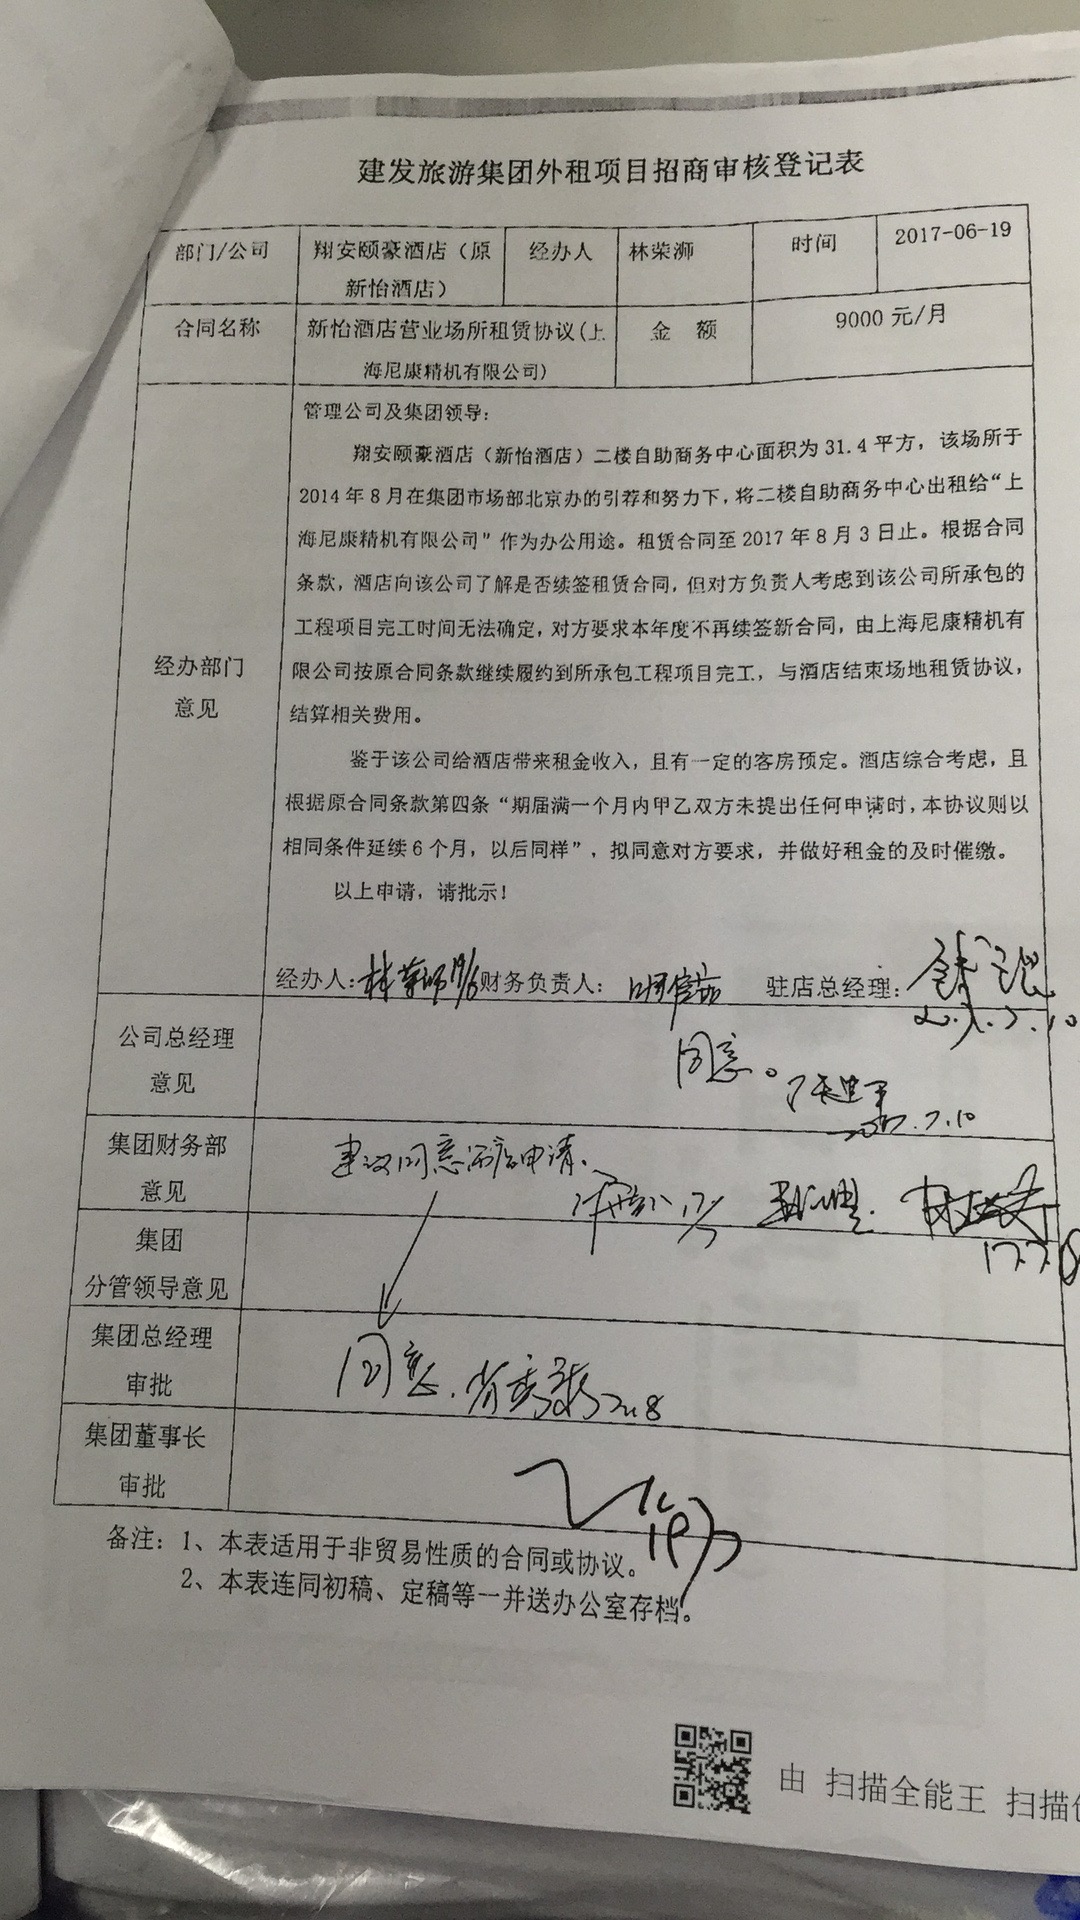 建发旅游集团外租项目招商审核登记表
部门/公司 翔安颐豪酒店（原 经办人 林荣浉 时间 2017-06-19
新怡酒店）
合同名称 新怡酒店营业场所租赁协议(上 金 额 9000 元/月
海尼康精机有限公司)
管理公司及集团领导：
翔安颐豪酒店（新怡酒店）二楼自助商务中心面积为 31.4 平方，该场所于
2014 年 8 月在集团市场部北京办的引荐和努力下，将二楼自助商务中心出租给“上
海尼康精机有限公司”作为办公用途。租赁合同至 2017 年 8 月 3 日止。根据合同
条款，酒店向该公司了解是否续签租赁合同，但对方负责人考虑到该公司所承包的
工程项目完工时间无法确定，对方要求本年度不再续签新合同，由上海尼康精机有
限公司按原合同条款继续履约到所承包工程项目完工，与酒店结束场地租赁协议，
结算相关费用。
经办部门
意见
鉴于该公司给酒店带来租金收入，且有一定的客房预定。酒店综合考虑，且
根据原合同条款第四条“期届满一个月内甲乙双方未提出任何申请时，本协议则以
相同条件延续 6 个月，以后同样”，拟同意对方要求，并做好租金的及时催缴。
以上申请，请批示！
经办人： 财务负责人： 驻店总经理：
公司总经理
意见
同意。
2017.7.10
集团财务部
意见
建议同意酒店申请.
集团
分管领导意见
集团总经理
审批
同意.
集团董事长
审批
备注：1、本表适用于非贸易性质的合同或协议。
2、本表连同初稿、定稿等一并送办公室存档。
由 扫描全能王 扫描